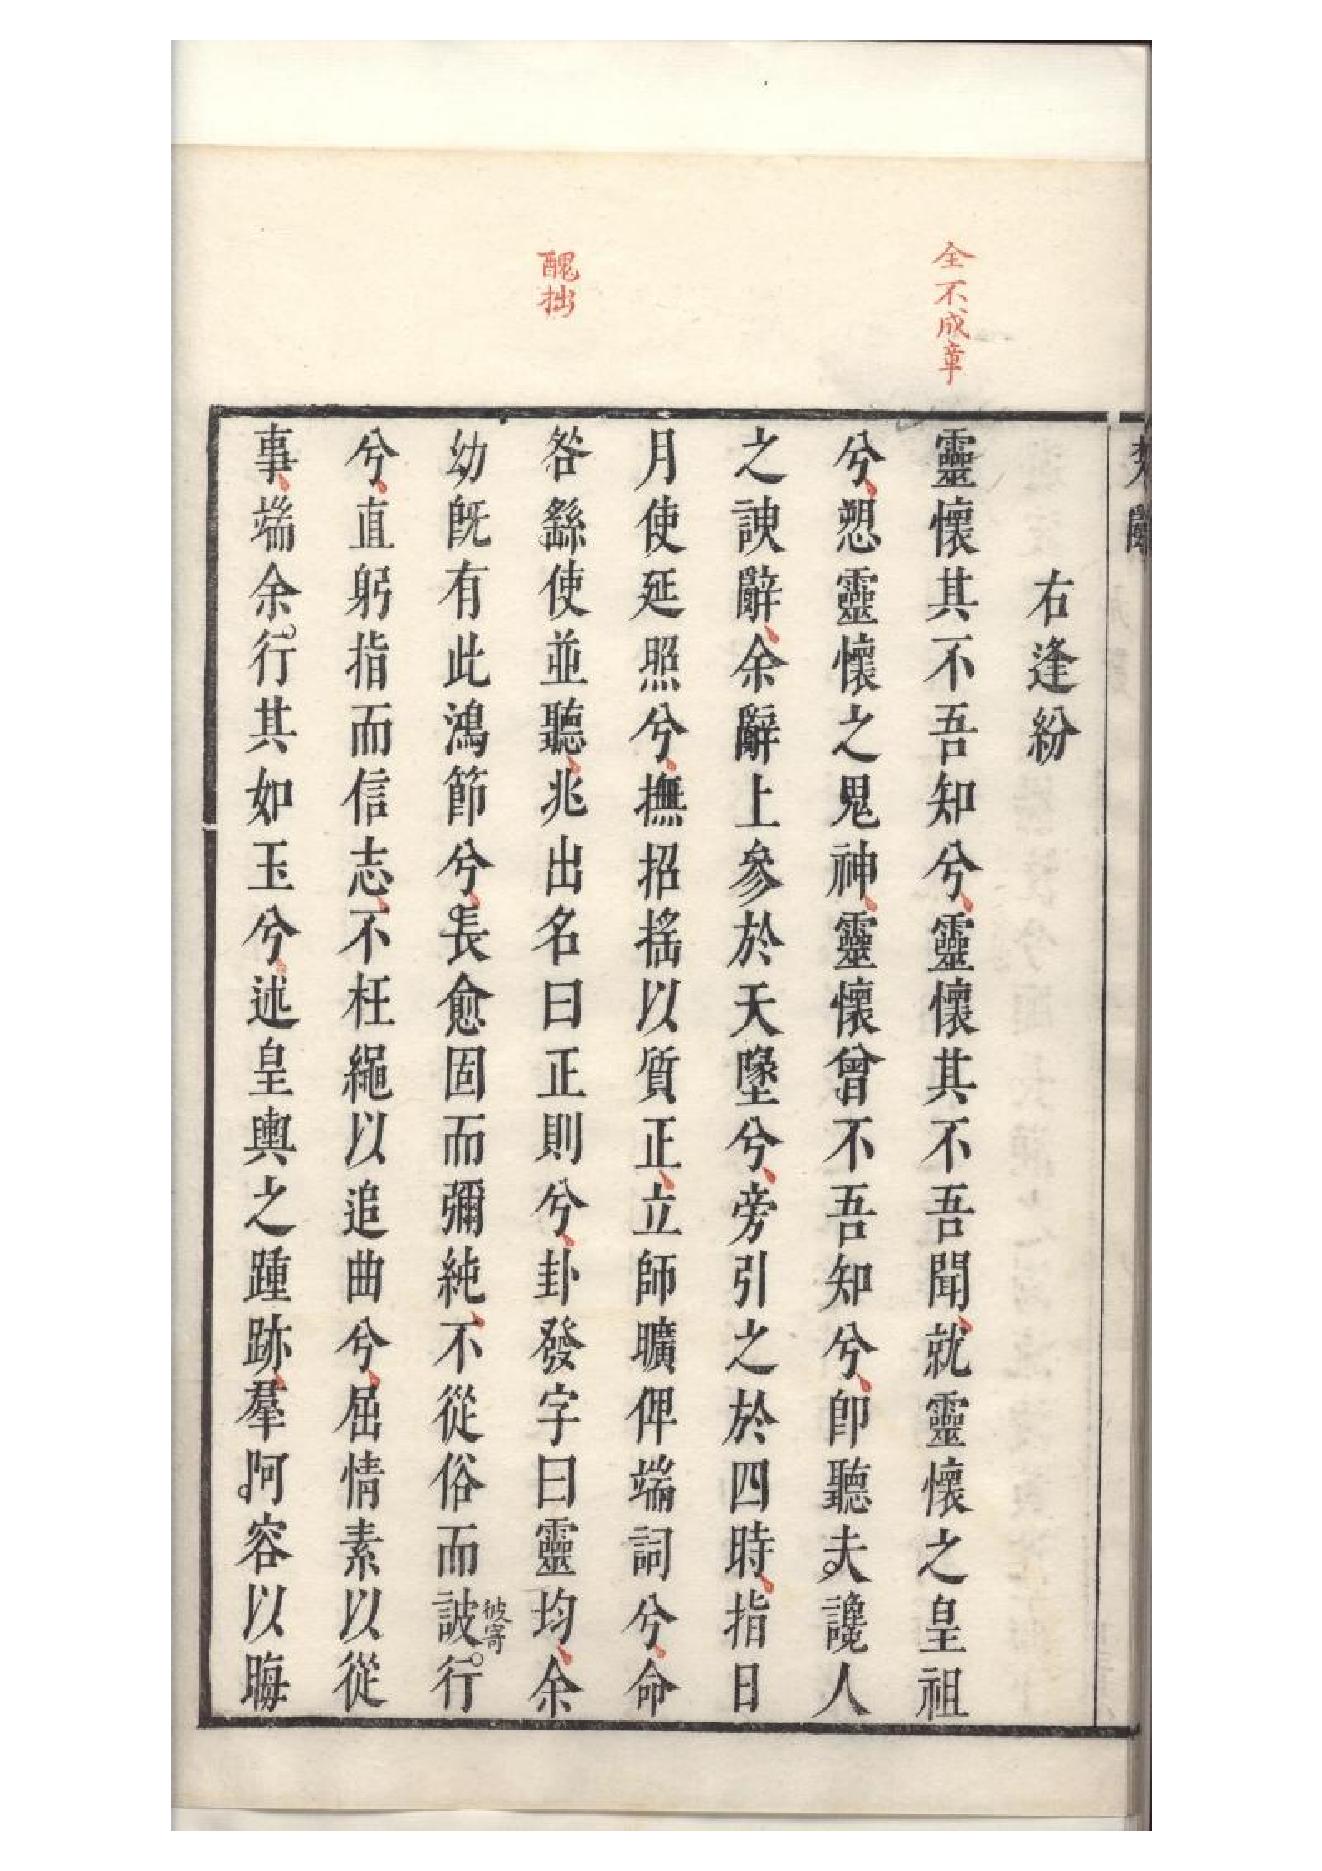 楚辭
右逢紛
全不成章
靈懷其不吾知兮靈懷其不吾聞就靈懷之皇祖
兮愬靈懷之鬼神靈懷曾不吾知兮卽聽夫讒人
之諛辭余辭上參於天墬兮旁引之於四時指日
月使延照兮撫招搖以質正立師曠俾端詞兮命
醜拙
咎繇使並聽兆出名曰正則兮卦發字曰靈均余
幼旣有此鴻節兮長愈固而彌純不從俗而詖行
彼寄
兮直躬指而信志不枉繩以追曲兮屈情素以從
事端余行其如玉兮述皇輿之踵跡羣阿容以晦